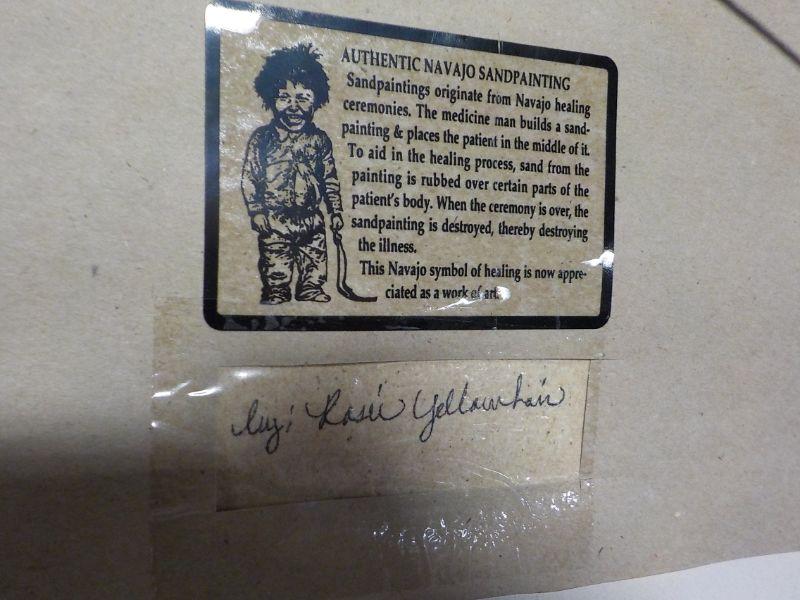 AUTHENTIC NAVAJO SANDPAINTING
Sandpaintings originate from Navajo healing
ceremonies. The medicine man builds a sand-
painting & places the patient in the middle of it.
To aid in the healing process, sand from the
painting is rubbed over certain parts of the
patient's body. When the ceremony is over, the
sandpainting is destroyed, thereby destroying
the illness.
This Navajo symbol of healing is now appre-
ciated as a work of art.
by: Rosie Yellowhair